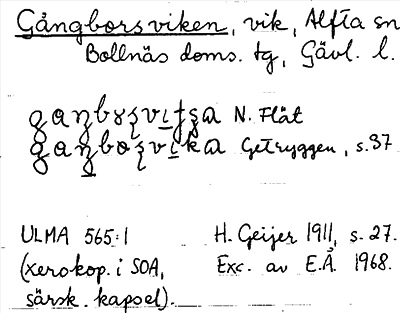 Gångborsviken, vik, Alfta sn
Bollnäs doms. tg, Gävl. l.
N. Flät
Getryggen, s. 37
ULMA 565:1 H. Geijer 1911, s. 27.
(xerokop. i SOA, Exc. av E.Å. 1968.
särsk. kapsel).